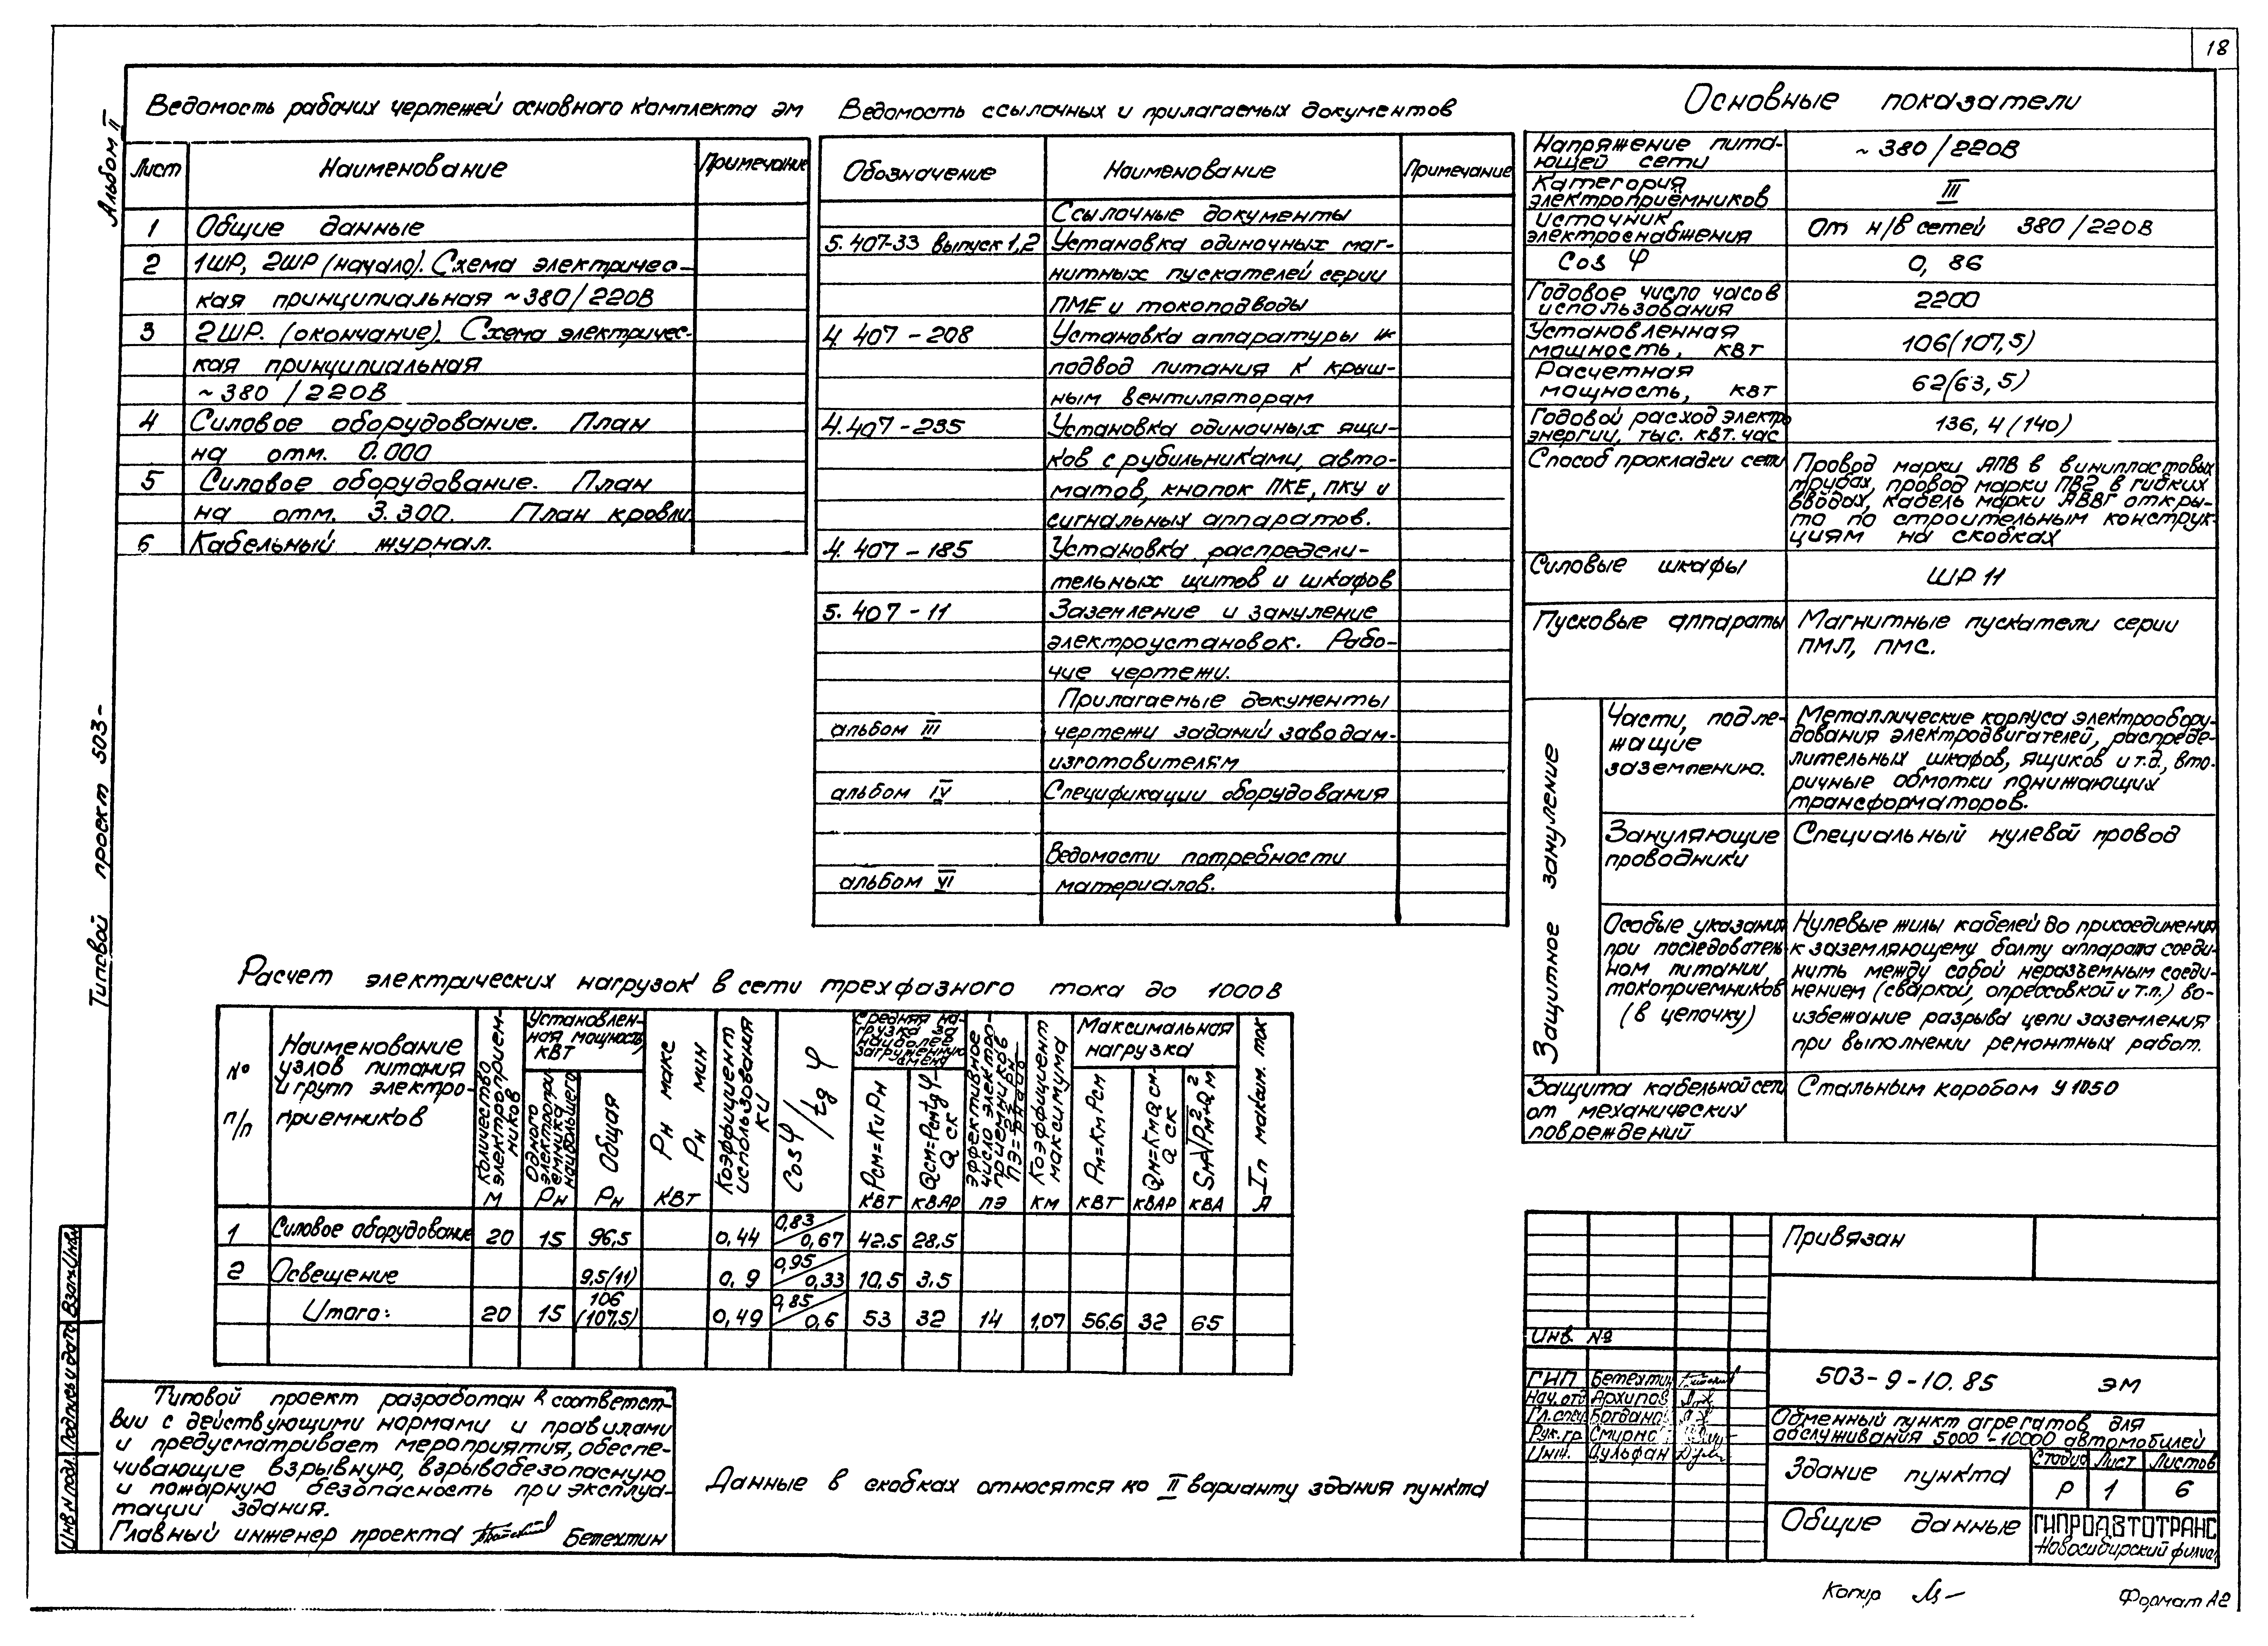 18
Альбом II
Типовой проект 503-
Ведомость рабочих чертежей основного комплекта ЭМ
Лист Наименование Примечание
1 Общие данные
2 1ШР, 2ШР (начало). Схема электричес-
кая принципиальная ~380/220В
3 2ШР. (окончание). Схема электричес-
кая принципиальная
~380/220В
4 Силовое оборудование. План
на отм. 0.000
5 Силовое оборудование. План
на отм. 3.300. План кровли.
6 Кабельный журнал.
Ведомость ссылочных и прилагаемых документов
Обозначение Наименование Примечание
Ссылочные документы
5.407-33 выпуск 1,2 Установка одиночных маг-
нитных пускателей серии
ПМЕ и токоподводы
4.407-208 Установка аппаратуры и
подвод питания к крыш-
ным вентиляторам
4.407-235 Установка одиночных ящи-
ков с рубильниками, авто-
матов, кнопок ПКЕ, ПКУ и
сигнальных аппаратов.
4.407-185 Установка распредели-
тельных щитов и шкафов
5.407-11 Заземление и зануление
электроустановок. Рабо-
чие чертежи.
Прилагаемые документы
альбом III чертежи заданий заводам-
изготовителям
альбом IV Спецификации оборудования
Ведомости потребности
альбом VI материалов.
Основные показатели
Напряжение пита-
ющей сети ~380/220В
Категория
электроприёмников III
Источник
электроснабжения От н/в сетей 380/220В
Cos φ 0,86
Годовое число часов
использования 2200
Установленная
мощность, квт 106(107,5)
Расчетная
мощность, квт 62(63,5)
Годовой расход электро
энергии, тыс. квт.час 136,4(140)
Способ прокладки сети Провод марки АПВ в винипластовых
трубах, провод марки ПВ2 в гибких
вводах, кабель марки АВВГ откры-
то по строительным конструк-
циям на скобках
Силовые шкафы ШР 11
Пусковые аппараты Магнитные пускатели серии
ПМЛ, ПМС.
Защитное зануление
Части, подле-
жащие
заземлению.
Металлические корпуса электрообору-
дования электродвигателей, распреде-
лительных шкафов, ящиков и т.д., вто-
ричные обмотки понижающих
трансформаторов.
Зануляющие
проводники
Специальный нулевой провод
Особые указания
при последователь-
ном питании
токоприемников
(в цепочку)
Нулевые жилы кабелей до присоединения
к заземляющему болту аппарата соеди-
нить между собой неразъемным соеди-
нением (сваркой, опрессовкой и т.п.) во-
избежание разрыва цепи заземления
при выполнении ремонтных работ.
Защита кабельной сети
от механических
повреждений
Стальным коробом У1050
Расчет электрических нагрузок в сети трехфазного тока до 1000В
№ п/п
Наименование
узлов питания
и групп электро-
приемников
Количество
электроприем-
ников
М
Установлен-
ная мощность
КВТ
Одного
электропри-
емника
наибольшего
Рн
Общая
Рн
Рн макс
Рн мин
КВТ
Коэффициент
использования
КИ
Cosφ/tgφ
Средняя на-
грузка за
наиболее
загруженную
смену
Рсм=КиРн
КВТ
Qсм=Рсмtgφ
Qск
КВАР
Эффективное
число электро-
приемников
пэ
Коэффициент
максимума
КМ
Максимальная
нагрузка
Рм=КмРсм
КВТ
Qм=КмQсм-
Qск
КВАР
Sм=√Рм²+Qм²
КВА
Iп максим. ток
А
1 Силовое оборудование 20 15 96,5 0,44 0,83/0,67 42,5 28,5
2 Освещение 9,5(11) 0,9 0,95/0,33 10,5 3,5
Итого: 20 15 106(107,5) 0,49 0,85/0,6 53 32 14 1,07 56,6 32 65
Типовой проект разработан в соответст-
вии с действующими нормами и правилами
и предусматривает мероприятия, обеспе-
чивающие взрывную, взрывобезопасную
и пожарную безопасность при эксплуа-
тации здания.
Главный инженер проекта Бетехтин
Данные в скобках относятся ко II варианту здания пункта
Привязан
Инв. №
ГИП Бетехтин
Нач.отд Архипов
Гл.спец. Богданов
Рук.гр. Смирно
Инж. Цульфан
503-9-10.85 ЭМ
Обменный пункт агрегатов для
обслуживания 5000-10000 автомобилей
Здание пункта
Стадия Лист Листов
Р 1 6
Общие данные
ГИПРОАВТОТРАНС
Новосибирский филиал
Инв.№подл. Подпись и дата Взам.инв.
Копир
Формат А2